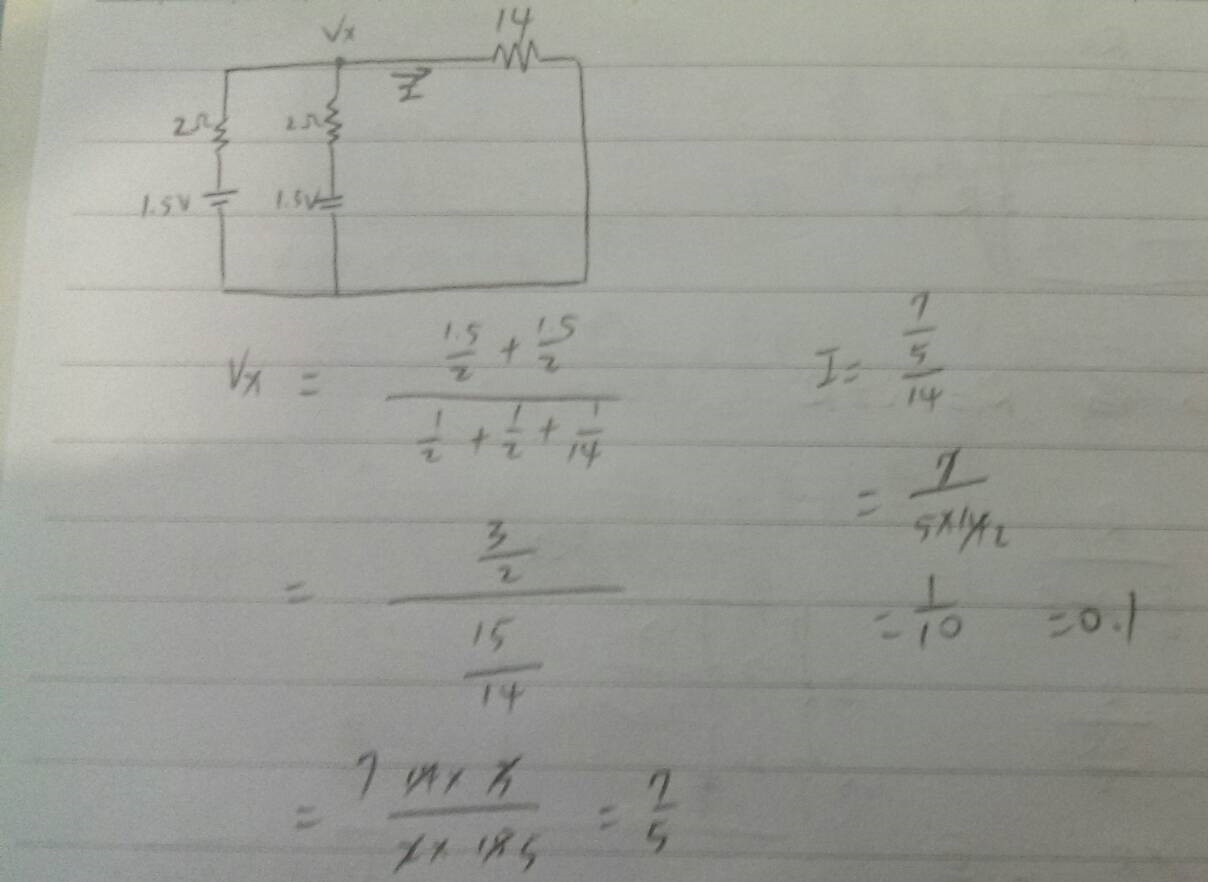 14
Vx
I
2Ω 2Ω
1.5V 1.5V
Vx = (1.5/2 + 1.5/2) / (1/2 + 1/2 + 1/14)
= (3/2) / (15/14)
= 7 14 x 3 / 2 x 15 5 = 7/5
I = (7/5) / 14
= 7 / 5 x 14 2
= 1/10 = 0.1